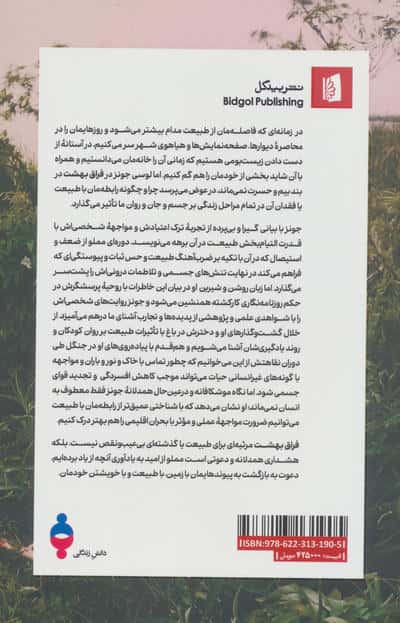 نشر بیدگل
Bidgol Publishing
در زمانه‌ای که فاصله‌مان از طبیعت مدام بیشتر می‌شود و روزهایمان را در
محاصرهٔ دیوارها، صفحه‌نمایش‌ها و هیاهوی شهر سر می‌کنیم، در آستانهٔ از
دست دادن زیست‌بومی هستیم که زمانی آن را خانه‌مان می‌دانستیم و همراه
با آن شاید بخشی از خودمان را هم گم کنیم. اما لوسی جونز در فراق بهشت در
بند بیم و حسرت نمی‌ماند، در عوض می‌پرسد چرا و چگونه رابطه‌مان با طبیعت
یا فقدان آن در تمام مراحل زندگی بر جسم و جان و روان ما تأثیر می‌گذارد.
جونز با بیانی گیرا و بی‌پرده از تجربهٔ ترک اعتیادش و مواجههٔ شخصی‌اش با
قدرت التیام‌بخش طبیعت در آن برهه می‌نویسد. دوره‌ای مملو از ضعف و
استیصال که در آن با تکیه بر ضرب‌آهنگ طبیعت و حس ثبات و پیوستگی‌ای که
فراهم می‌کند در نهایت تنش‌های جسمی و تلاطمات درونی‌اش را پشت‌سر
می‌گذارد. اما زبان روشن و شیرین او در بیان این خاطرات با روحیهٔ پرسشگرش در
حکم روزنامه‌نگاری کارکشته همنشین می‌شود و جونز روایت‌های شخصی‌اش
را با شواهدی علمی و پژوهشی از پدیده‌ها و تجارب آشنای ما درهم می‌آمیزد. از
خلال گشت‌وگذارهای او و دخترش در باغ با تأثیرات طبیعت بر روان کودکان و
روند یادگیری‌شان آشنا می‌شویم و هم‌قدم با پیاده‌روی‌های او در جنگل طی
دوران نقاهتش از این می‌خوانیم که چطور تماس با خاک و نور و باران و مواجهه
با گونه‌های غیرانسانی حیات می‌تواند موجب کاهش افسردگی و تجدید قوای
جسمی شود. اما نگاه موشکافانه و درعین‌حال همدلانهٔ جونز فقط معطوف به
انسان نمی‌ماند؛ او نشان می‌دهد که با شناختی عمیق‌تر از رابطه‌مان با طبیعت
می‌توانیم ضرورت مواجههٔ عملی و مؤثر با بحران اقلیمی را هم بهتر درک کنیم.
فراق بهشت مرثیه‌ای برای طبیعت یا گذشته‌ای بی‌عیب‌ونقص نیست بلکه
هشداری همدلانه و دعوتی است مملو از امید به یادآوری آنچه از یاد برده‌ایم.
دعوت به بازگشت به پیوندهایمان با زمین، با طبیعت و با خویشتن خودمان.
ISBN: 978-622-313-190-5
قیمت: ۴۲۵۰۰۰ تومان
دانش زندگانی